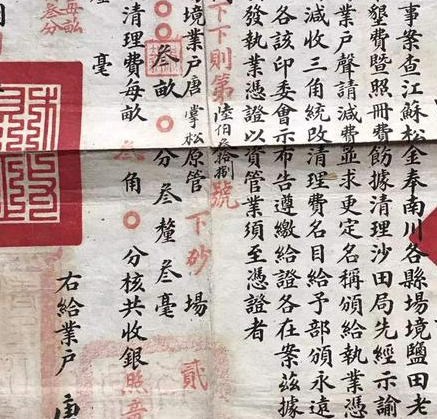 事案查江蘇松金奉南川各縣場境鹽田老
墾費暨照冊費飭據清理沙田局先經示諭
業戶聲請減費並求更定名稱頒給執業憑
減收三角統改清理費名目給予部頒永遠
各該印委會示布告遵繳給證各在案茲據
發執業憑證以資管業須至憑證者
下下則第陸伯叁拾捌號
境業戶唐掌松原管下砂場
叁畝〇分叁釐叁毫
清理費每畝叁角〇分核共收銀
毫
右給業戶唐
每畝
叁分
貳
照